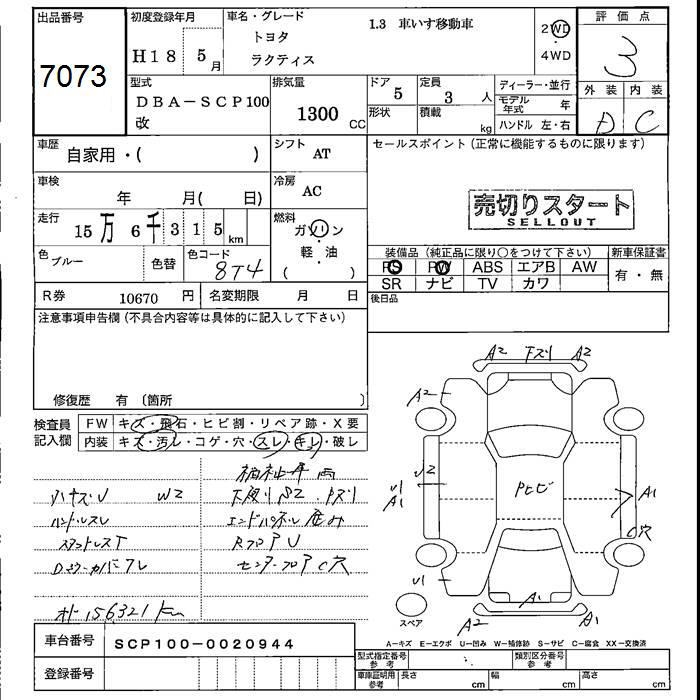 出品番号
7073
初度登録年月
H18 5月
車名・グレード
トヨタ
ラクティス
1.3 車いす移動車
2WD
・
4WD
評価点
3
外装 内装
D C
型式
DBA-SCP100
改
排気量
1300 cc
ドア
5
定員
3 人
形状
積載
kg
ディーラー・並行
モデル年式 年
ハンドル 左・右
車歴
自家用・( )
シフト
AT
車検
年 月( 日)
冷房
AC
走行
15万6千315km
燃料
ガソリン
・
軽油
( )
色
ブルー
色替
色コード
8T4
R券 10670 円
名変期限 月 日
セールスポイント(正常に機能するものに限ります)
売切りスタート
SELLOUT
装備品(純正品に限り○をつけて下さい)
PS PW ABS エアB AW
SR ナビ TV カワ
新車保証書
有・無
後日品
注意事項申告欄(不具合内容等は具体的に記入して下さい)
修復歴 有 〔箇所 〕
検査員
記入欄
FW キズ・飛石・ヒビ割・リペア跡・X要
内装 キズ・汚レ・コゲ・穴・スレ・キレ・破レ
福祉車両
W2
ハンドルスレ
エンドパネル歪み
センターフロアC穴
オド156321km
A2 下ズリ A2
A2
U2
U1
A1
Pヒビ
A1
C穴
U1
A1
A2
A1
スペア
A-キズ E-エクボ U-凹み W-補修跡 S-サビ C-腐食 XX-交換済
車台番号
SCP100-0020944
登録番号
型式指定番号
参考
類別区分番号
参考
車庫証明用
参考
長さ cm
幅 cm
高さ cm